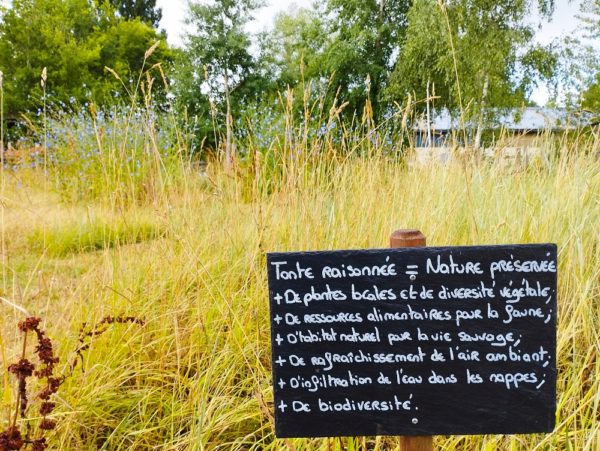 Tonte raisonnée = Nature préservée
+ De plantes locales et de diversité végétale;
+ De ressources alimentaires pour la faune;
+ D'habitat naturel pour la vie sauvage;
+ De rafraîchissement de l'air ambiant;
+ D'infiltration de l'eau dans les nappes;
+ De biodiversité.